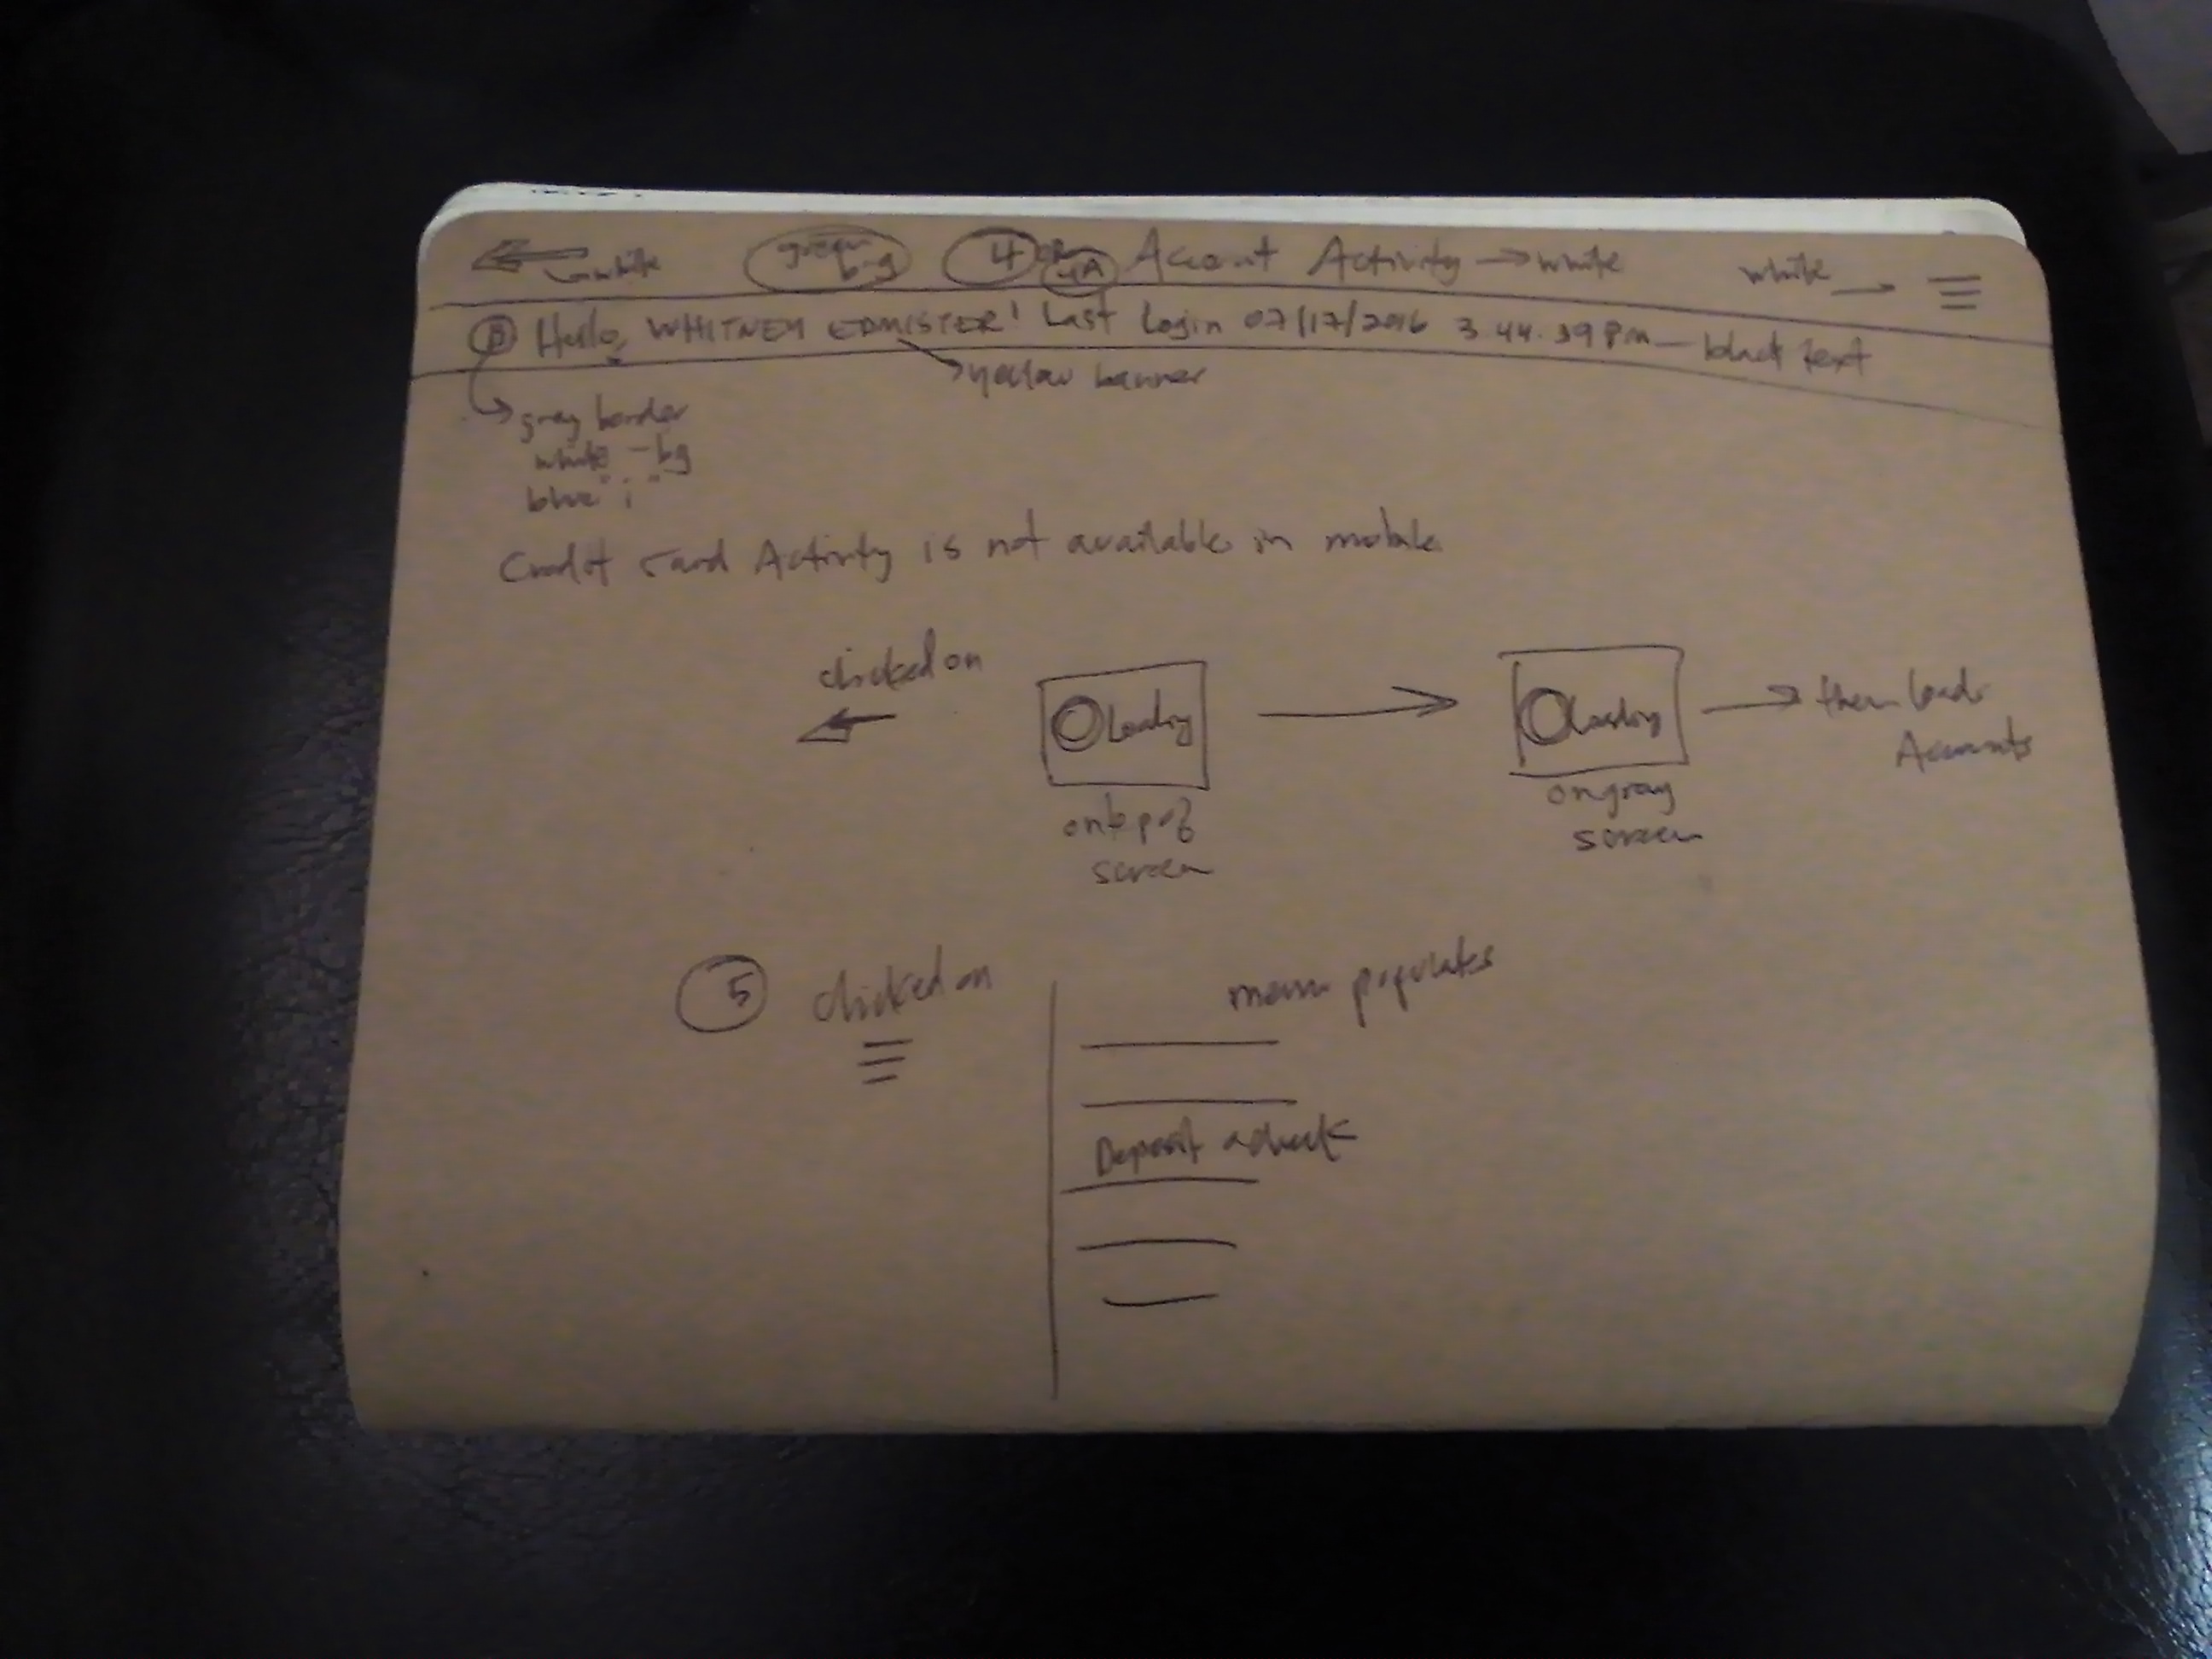 white green b-g 4 or 4A Account Activity → white white
Hello, WHITNEY EDMISTER! Last Login 07/17/2016 3:44:39 PM — black text
yellow banner
grey border
white - bg
blue "i"
Credit Card Activity is not available in mobile
clicked on
Loading
Loading
then loads
Accounts
on top of
screen
on gray
screen
5 clicked on
menu populates
Deposit a check